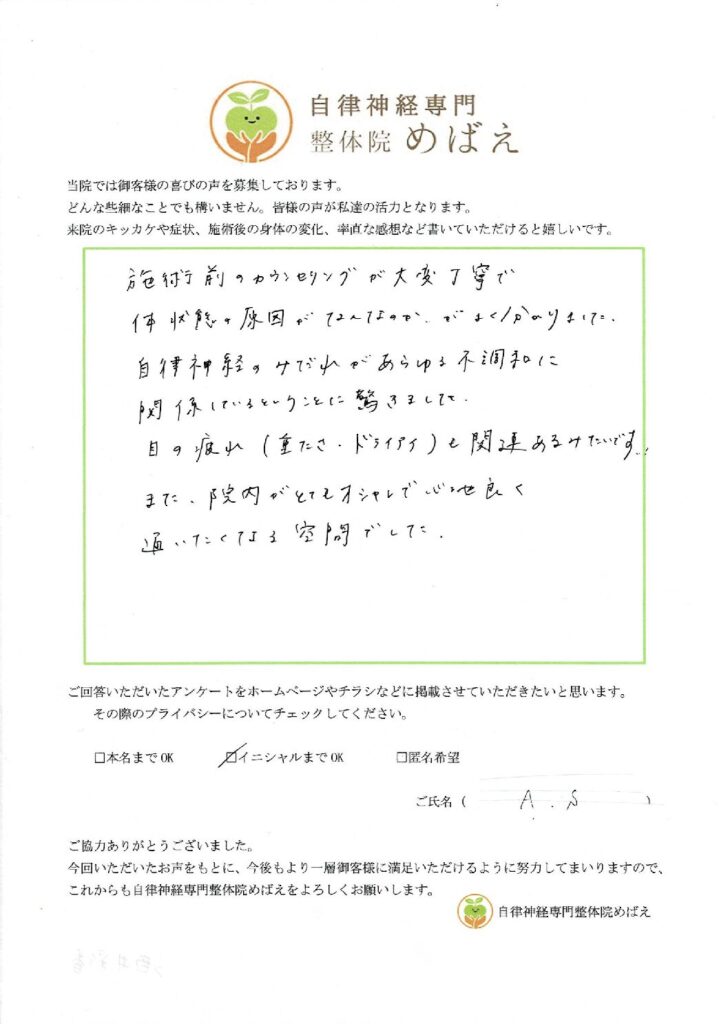 自律神経専門
整体院 めばえ
当院では御客様の喜びの声を募集しております。
どんな些細なことでも構いません。皆様の声が私達の活力となります。
来院のキッカケや症状、施術後の身体の変化、率直な感想など書いていただけると嬉しいです。
施術前のカウンセリングが大変丁寧で
体状態の原因がなんなのか、がよく分かりました。
自律神経のみだれがあらゆる不調和に
関係しているということに驚きました。
目の疲れ(重たさ・ドライアイ)も関連あるみたいです。
また、院内がとてもオシャレで心地良く
通いたくなる空間でした。
ご回答いただいたアンケートをホームページやチラシなどに掲載させていただきたいと思います。
その際のプライバシーについてチェックしてください。
□本名までOK □イニシャルまでOK □匿名希望
ご氏名( A.S )
ご協力ありがとうございました。
今回いただいたお声をもとに、今後もより一層御客様に満足いただけるように努力してまいりますので、
これからも自律神経専門整体院めばえをよろしくお願いします。
自律神経専門整体院めばえ